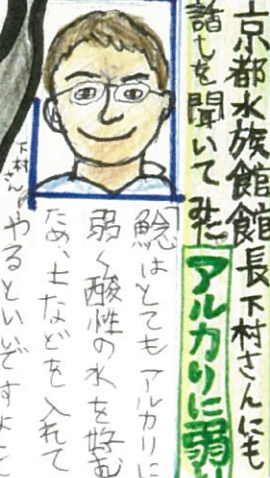 京都水族館館長下村さんにも
話しを聞いてみた
アルカリに弱い
下村さん
「鯰はとてもアルカリに
弱く酸性の水を好む
ため、土などを入れて
やるといいですよ